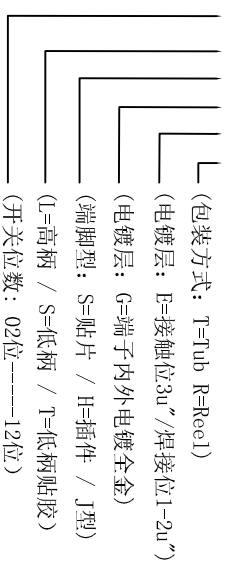 (包装方式: T=Tub R=Reel)
(电镀层: E=接触位3u"/焊接位1-2u")
(电镀层: G=端子内外电镀全金)
(端脚型: S=贴片 / H=插件 / J型)
(L=高柄 / S=低柄 / T=低柄贴胶)
(开关位数: 02位-----12位)